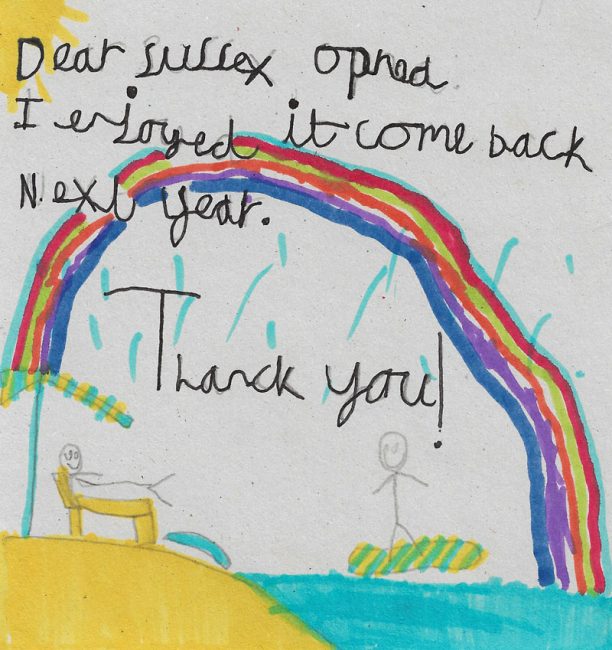 Dear sussex opned
I enjoyed it come back
Next year.
Thanck you!